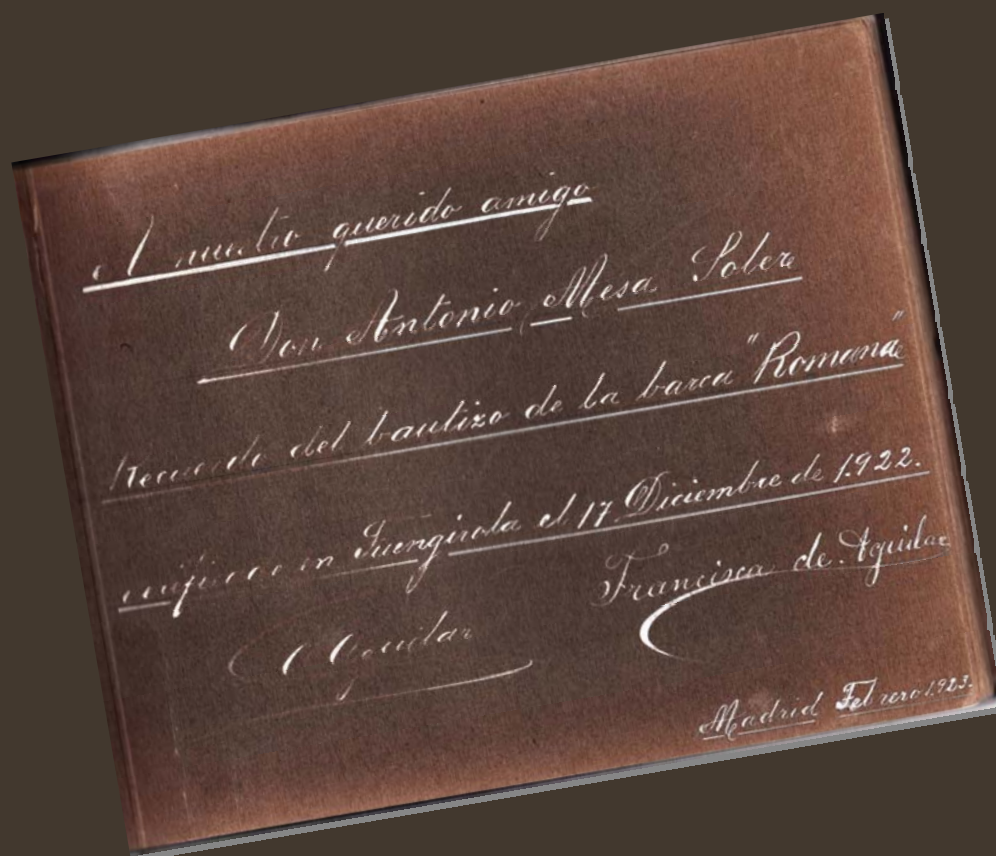 A nuestro querido amigo
Don Antonio Mesa Soler
Recuerdo del bautizo de la barca "Romana"
verificado en Fuengirola el 17 Diciembre de 1.922.
Francisca de Aguilar
Aguilar
Madrid Febrero 1.923.